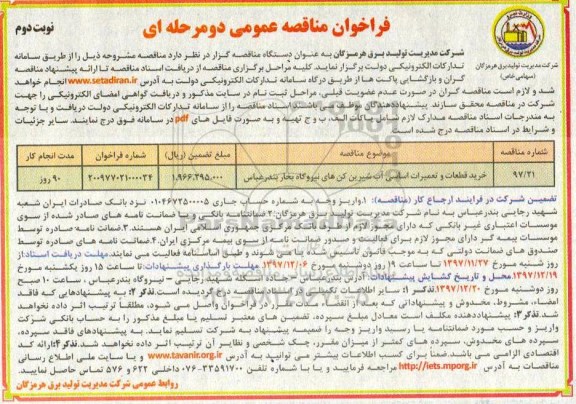 فراخوان مناقصه عمومی دو مرحله ای
نوبت دوم
شرکت مدیریت تولید برق هرمزگان
(سهامی خاص)
شرکت مدیریت تولید برق هرمزگان به عنوان دستگاه مناقصه گزار در نظر دارد مناقصه مشروحه ذیل را از طریق سامانه
تدارکات الکترونیکی دولت برگزار نماید. کلیه مراحل برگزاری مناقصه از دریافت اسناد مناقصه تا ارائه پیشنهاد مناقصه
گران و بازگشایی پاکت ها از طریق درگاه سامانه تدارکات الکترونیکی دولت به آدرس www.setadiran.ir انجام خواهد
شد و لازم است مناقصه گران در صورت عدم عضویت قبلی، مراحل ثبت نام در سایت مذکور و دریافت گواهی امضای الکترونیکی را جهت
شرکت در مناقصه محقق سازند. پیشنهاددهندگان می بایستی اسناد مناقصه را از سامانه تدارکات الکترونیکی دولت دریافت و با توجه
به مندرجات اسناد مناقصه مدارک لازم شامل پاکات الف، ب و ج تهیه و به صورت فایل های pdf در سامانه فوق درج نمایند. سایر جزئیات
و شرایط در اسناد مناقصه درج شده است.
شماره مناقصه موضوع مناقصه مبلغ تضمین (ریال) شماره فراخوان مدت انجام کار
۹۷/۳۱ خرید قطعات و تعمیرات اساسی آب شیرین کن های نیروگاه بخار بندرعباس ۱,۹۶۶,۳۹۵,۰۰۰ ۲۰۰۹۷۷۰۲۱۰۰۰۰۳۴ ۹۰ روز
تضمین شرکت در فرایند ارجاع کار (مناقصه): ۱.واریز وجه به شماره حساب جاری ۰۱۰۴۶۷۲۵۰۰۰۵ نزد بانک صادرات ایران شعبه
شهید رجایی بندرعباس به نام شرکت مدیریت تولید برق هرمزگان ۲.ضمانتنامه بانکی و یا ضمانت نامه های صادر شده از سوی
موسسات اعتباری غیر بانکی که دارای مجوز لازم از بانک مرکزی جمهوری اسلامی ایران هستند. ۳.ضمانت نامه صادره توسط
موسسات بیمه گر دارای مجوز لازم برای فعالیت و صدور ضمانت نامه از سوی بیمه مرکزی ایران. ۴.ضمانت نامه صادره توسط
صندوق های ضمانت دولتی که به موجب قانون تاسیس شده یا می شوند و طبق اساسنامه فعالیت می نمایند. مهلت دریافت اسناد: از
روز شنبه مورخ ۱۳۹۷/۱۱/۲۷ تا ساعت ۱۹ روز دوشنبه مورخ ۱۳۹۷/۱۲/۰۶ مهلت بارگذاری پیشنهادات: تا ساعت ۱۵ روز یکشنبه مورخ
۱۳۹۷/۱۲/۱۹ محل و تاریخ گشایش پیشنهادات: آدرس بندرعباس - جاده اسکله شهید رجایی - نیروگاه بندرعباس، ساعت ۱۰ صبح
روز دوشنبه مورخ ۱۳۹۷/۱۲/۲۰ تذکر ۱: سایر اطلاعات تکمیلی در اسناد مناقصه درج گردیده است. تذکر ۲: به پیشنهادهایی که فاقد
امضاء، مشروط، مخدوش و پیشنهاداتی که بعد از انقضاء مدت مقرر در فراخوان واصل می شود، مطلقاً ترتیب اثر داده نخواهد
شد. تذکر ۳: پیشنهاددهنده مکلف است معادل مبلغ سپرده، تضمین های معتبر تسلیم یا مبلغ مذکور را به حساب بانکی شرکت
واریز و حسب مورد ضمانتنامه یا رسید واریز وجه را ضمیمه پیشنهاد به شرکت تسلیم نماید. به پیشنهادهای فاقد سپرده،
سپرده های مخدوش، سپرده های کمتر از میزان مقرر، چک شخصی و نظایر آن ترتیب اثر داده نخواهد شد. تذکر ۴: ارائه کد
اقتصادی الزامی می باشد. ضمنا برای کسب اطلاعات بیشتر می توانید به آدرس www.tavanir.org.ir و یا سایت ملی اطلاع رسانی
مناقصات به آدرس http://iets.mporg.ir مراجعه فرمایید و یا با شماره تلفن ۳۳۵۹۱۷۰۰-۰۷۶ داخلی ۶۲۲ و ۵۷۶ تماس حاصل نمایید.
روابط عمومی شرکت مدیریت تولید برق هرمزگان